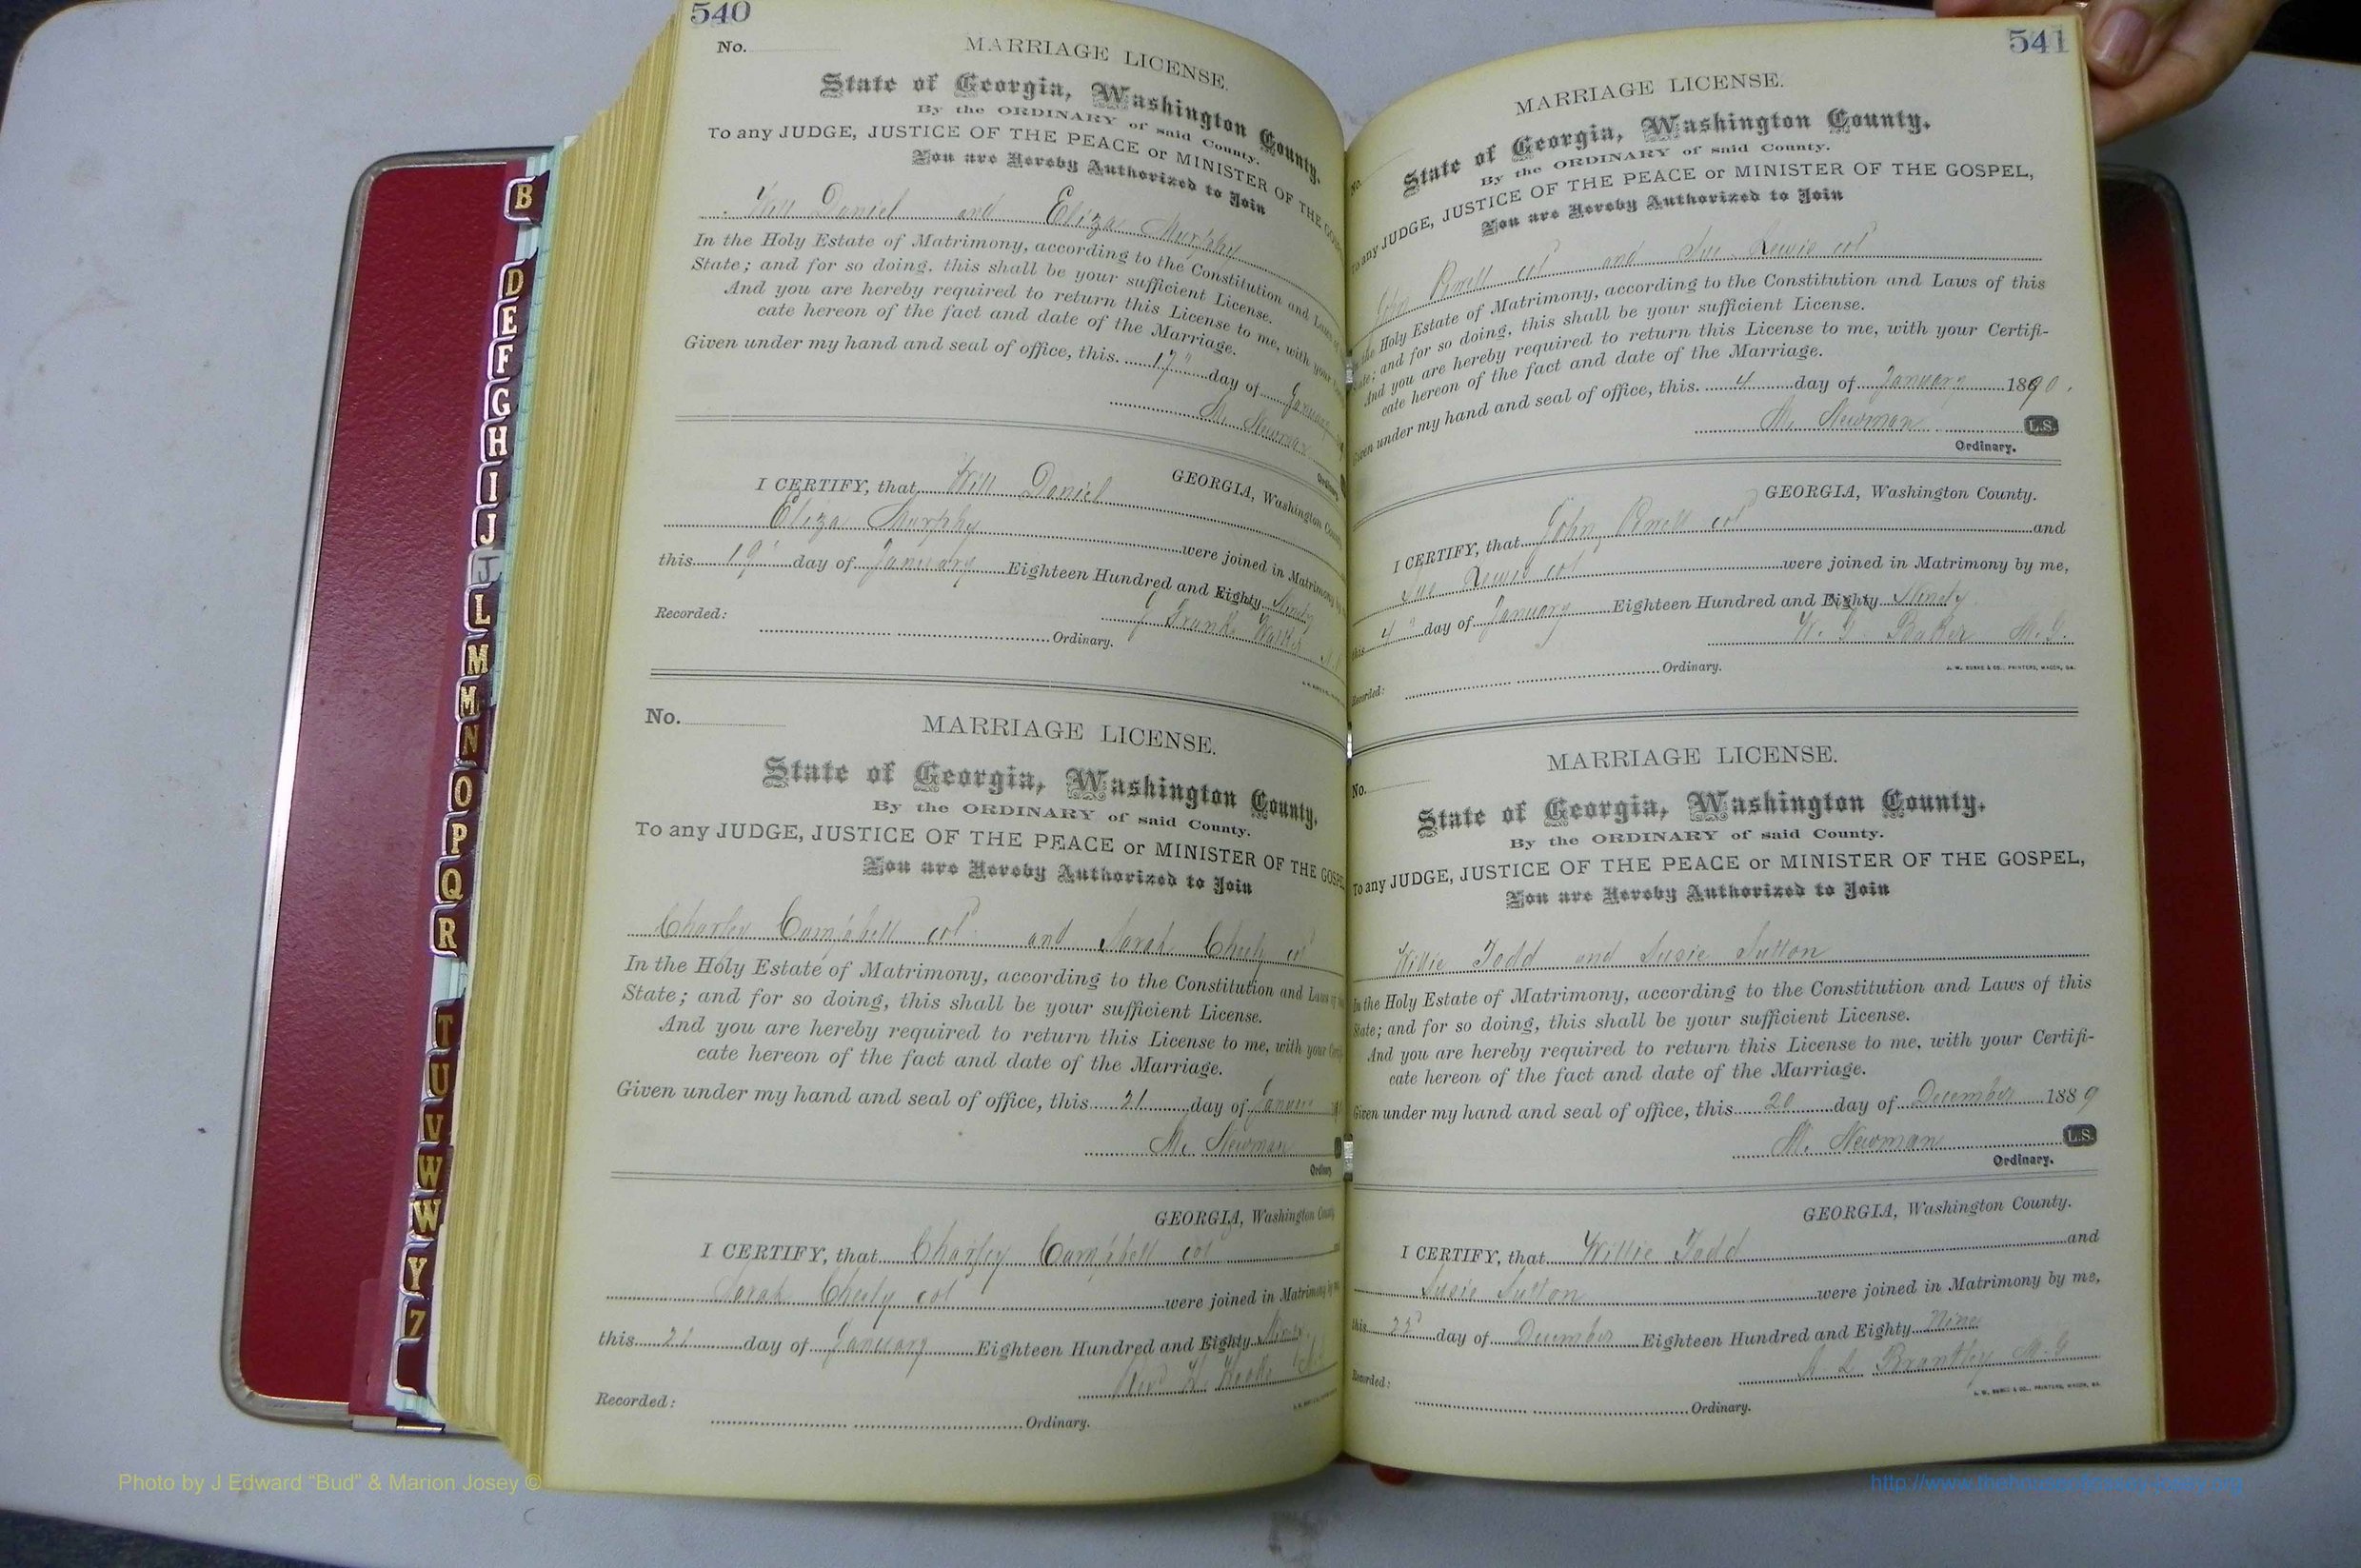 540
No.
MARRIAGE LICENSE.
State of Georgia, Washington County.
By the ORDINARY of said County.
To any JUDGE, JUSTICE OF THE PEACE or MINISTER OF THE
You are Hereby Authorized to Join
Will Daniel and Eliza Murphy
In the Holy Estate of Matrimony, according to the Constitution and Laws of
State; and for so doing, this shall be your sufficient License.
And you are hereby required to return this License to me, with your
cate hereon of the fact and date of the Marriage.
Given under my hand and seal of office, this 17" day of January
M. Newman
Ordinary
GEORGIA, Washington
I CERTIFY, that Will Daniel
Eliza Murphy were joined in Matrimony
this 19" day of January Eighteen Hundred and Eighty Ninety
Recorded:
Ordinary.
No.
MARRIAGE LICENSE.
State of Georgia, Washington County.
By the ORDINARY of said County.
To any JUDGE, JUSTICE OF THE PEACE or MINISTER OF THE
You are Hereby Authorized to Join
Charley Campbell col and Sarah Cheely col
In the Holy Estate of Matrimony, according to the Constitution and Laws of
State; and for so doing, this shall be your sufficient License.
And you are hereby required to return this License to me, with your
cate hereon of the fact and date of the Marriage.
Given under my hand and seal of office, this 21 day of
M. Newman
Ordinary
GEORGIA, Washington
I CERTIFY, that Charley Campbell col
Sarah Cheely col were joined in Matrimony by
this 22 day of January Eighteen Hundred and Eighty Ninety
Recorded:
Ordinary.
541
No.
MARRIAGE LICENSE.
State of Georgia, Washington County.
By the ORDINARY of said County.
To any JUDGE, JUSTICE OF THE PEACE or MINISTER OF THE GOSPEL,
You are Hereby Authorized to Join
John col and Sue Lewis col
the Holy Estate of Matrimony, according to the Constitution and Laws of this
State; and for so doing, this shall be your sufficient License.
And you are hereby required to return this License to me, with your Certifi-
cate hereon of the fact and date of the Marriage.
Given under my hand and seal of office, this 4 day of January 1890.
M. Newman L.S.
Ordinary.
GEORGIA, Washington County.
I CERTIFY, that John col and
Sue Lewis col were joined in Matrimony by me,
this 4" day of January Eighteen Hundred and Eighty Ninety
Baker M.G.
Recorded: Ordinary.
J. W. BURKE & CO., PRINTERS, MACON, GA.
MARRIAGE LICENSE.
No.
State of Georgia, Washington County.
By the ORDINARY of said County.
To any JUDGE, JUSTICE OF THE PEACE or MINISTER OF THE GOSPEL,
You are Hereby Authorized to Join
Willie Todd and Susie Sutton
In the Holy Estate of Matrimony, according to the Constitution and Laws of this
State; and for so doing, this shall be your sufficient License.
And you are hereby required to return this License to me, with your Certifi-
cate hereon of the fact and date of the Marriage.
Given under my hand and seal of office, this 20 day of December 1889
M. Newman L.S.
Ordinary.
GEORGIA, Washington County.
I CERTIFY, that Willie Todd and
Susie Sutton were joined in Matrimony by me,
this day of December Eighteen Hundred and Eighty Nine
Brantley M.G.
Recorded: Ordinary.
J. W. BURKE & CO., PRINTERS, MACON, GA.
B
D
E
F
G
H
I
J
J
L
M
M
N
O
P
Q
R
T
U
V
W
W
Y
Z
Photo by J Edward “Bud” & Marion Josey ©